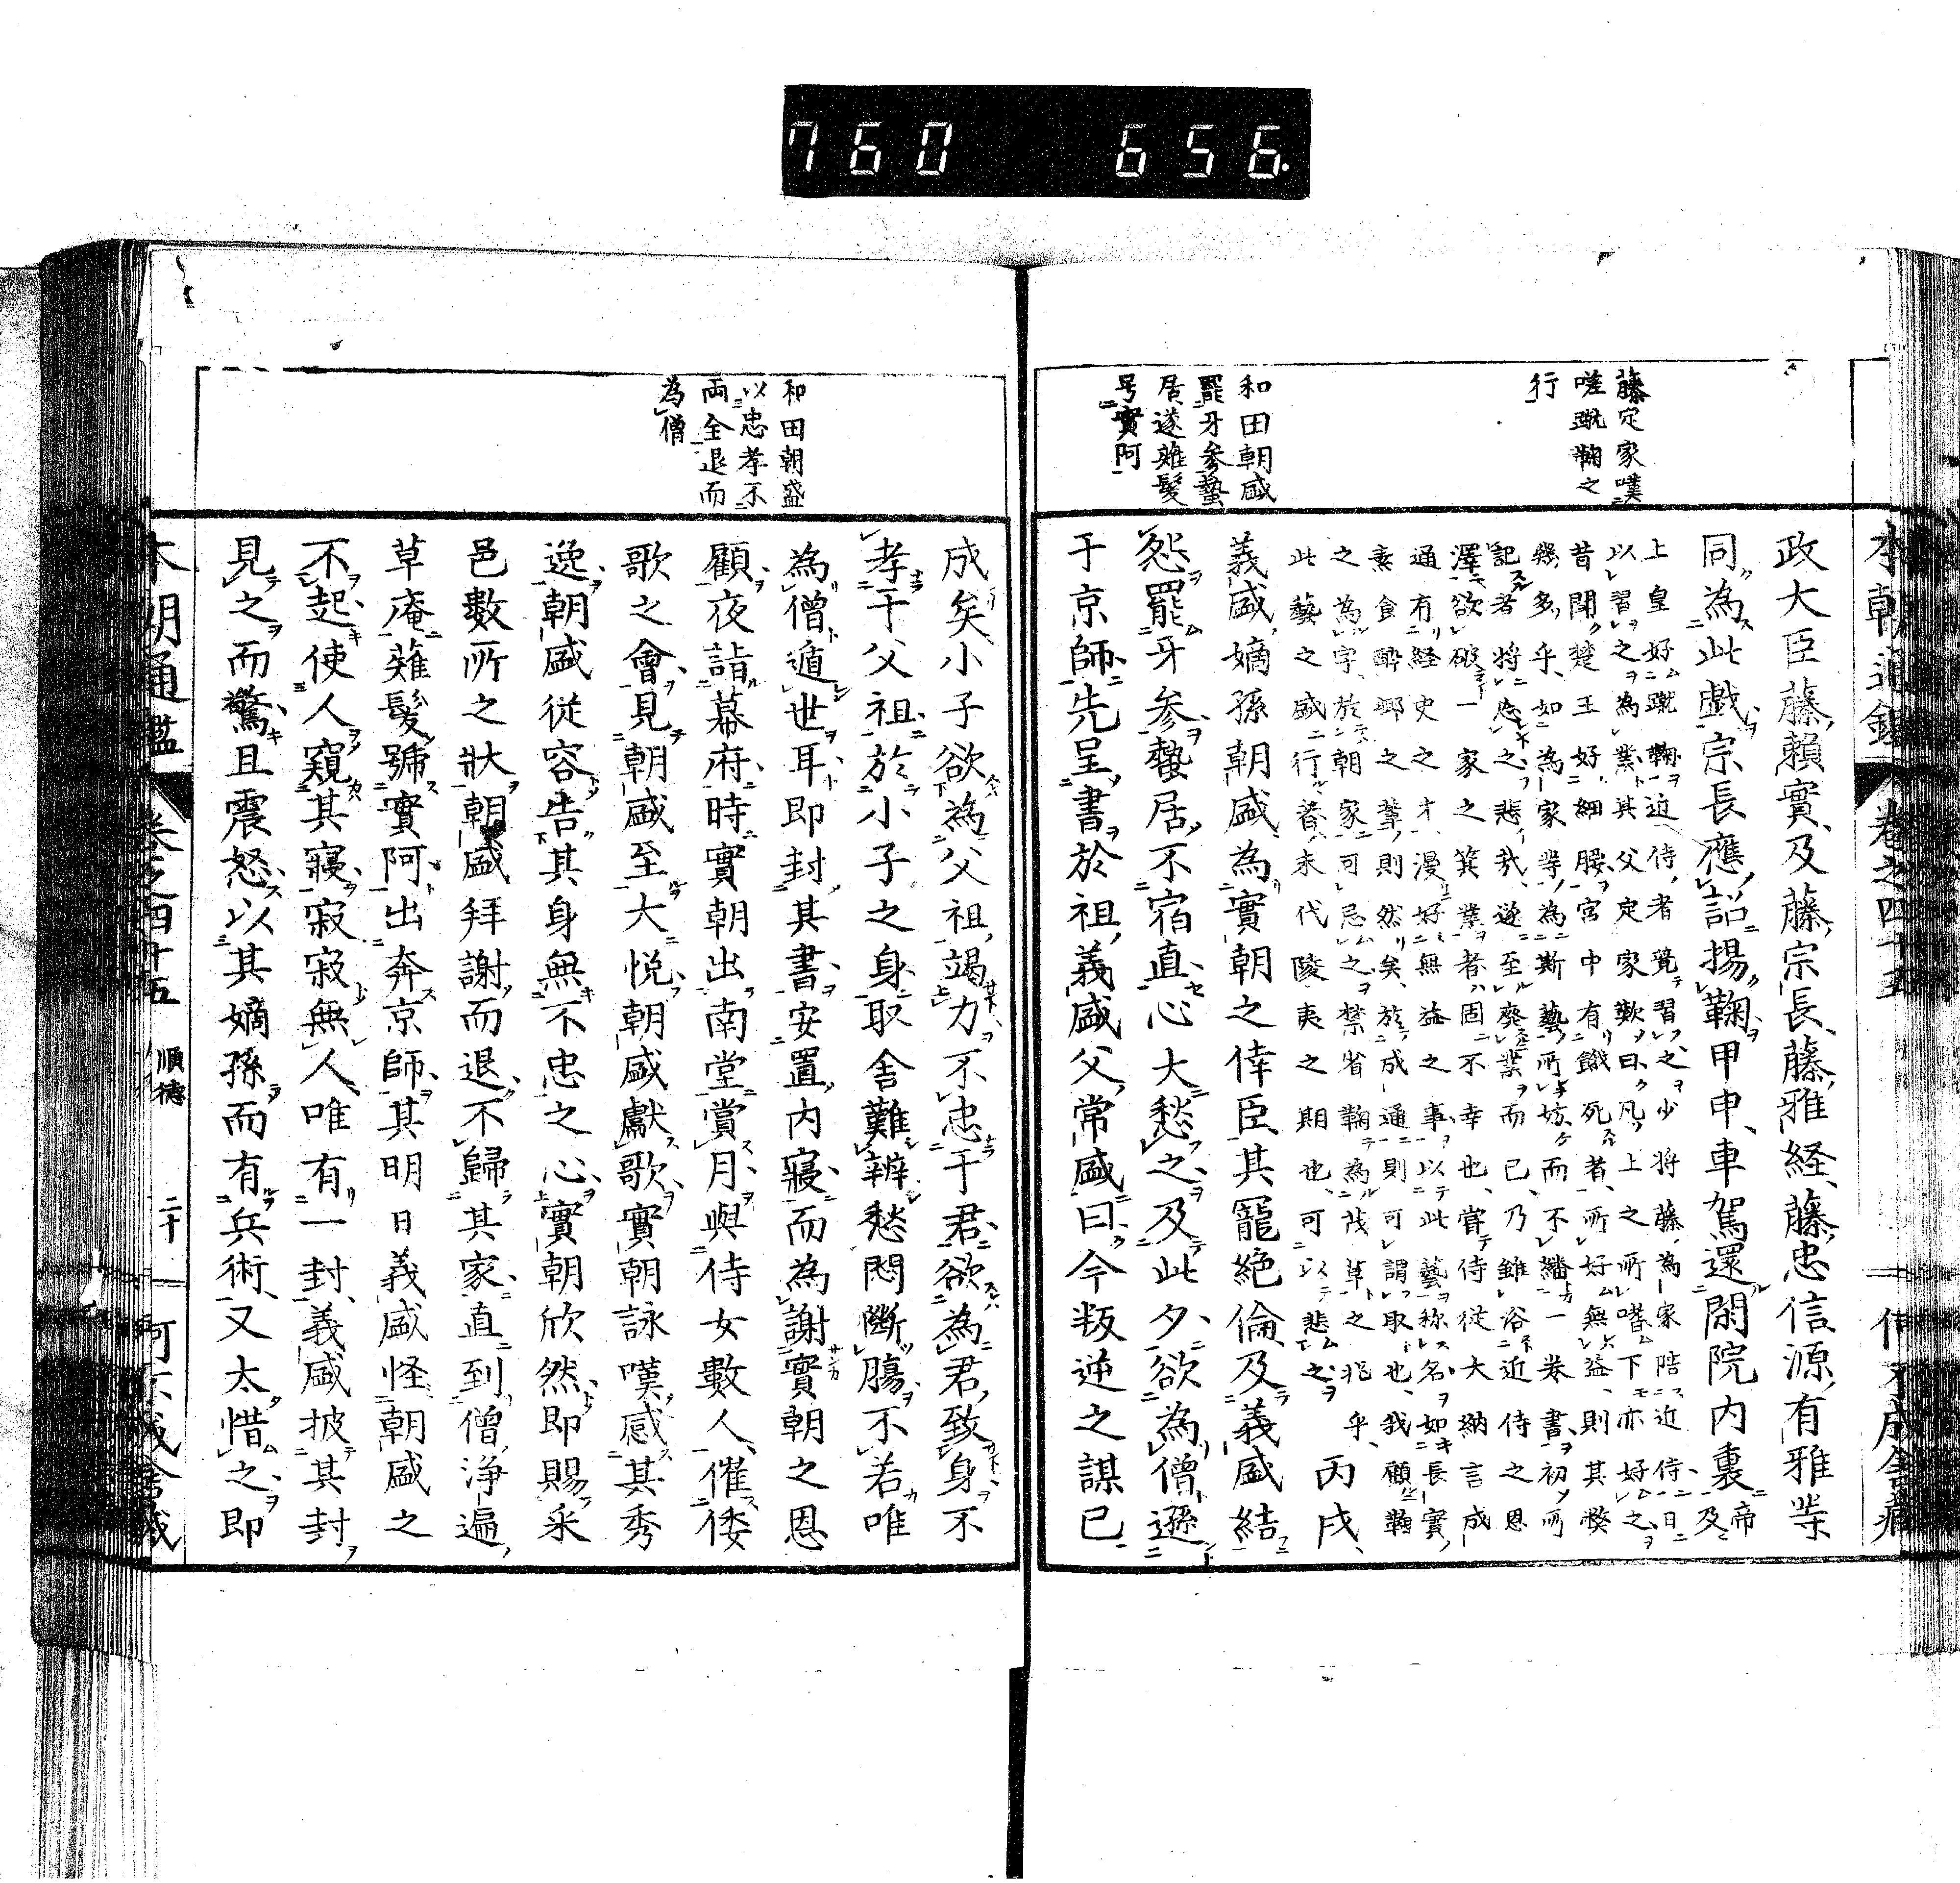 760 656
本朝通鑑 卷之四十五
藤定家嘆
嗟蹴鞠之
行
和田朝盛
罷牙參蟄
居遂薙髮
号實阿
政大臣藤賴實及藤宗長藤雅経藤忠信源有雅等
同為此戯宗長應詔揚鞠甲申車駕還閑院内裏帝及
上皇好蹴鞠近侍者覺習之少將藤為家陪近侍日
以習之為業其父定家歎曰凡上之所嗜下亦好之
昔聞楚王好細腰宮中有餓死者所好無益則其弊
幾多乎如為家等為斯藝所妨而不繙一卷書初所
記者將忘之悲哉遂至廢業而已乃雖浴近侍之恩
澤欲破一家之箕業者固不幸也嘗侍從大納言成
通有経史之才漫好無益之事以此藝称名如長實
素食酔郷之輩則然矣於成通則可謂取也我顧鞠
之為字於朝家可忌之禁省鞠為茂草之兆乎
此藝之盛行者末代陵夷之期也可以悲之 丙戌
義盛嫡孫朝盛為實朝之倖臣其寵絶倫及義盛結
怨罷牙參蟄居不宿直心大愁之及此夕欲為僧遜
于京師先呈書於祖義盛父常盛曰今叛逆之謀已
和田朝盛
以忠孝不
両全退而
為僧
成矣小子欲為父祖竭力不忠于君欲為君致身不
孝于父祖於小子之身取舍難辨愁悶斷膓不若唯
為僧遁世耳即封其書安置内寢而為謝實朝之恩
顧夜詣幕府時實朝出南堂賞月與侍女數人催倭
歌之會見朝盛至大悦朝盛獻歌實朝詠嘆感其秀
逸朝盛從容告其身無不忠之心實朝欣然即賜采
邑數所之狀朝盛拜謝而退不歸其家直到僧浄遍
草庵薙髮號實阿出奔京師其明日義盛怪朝盛之
不起使人窺其寢寂寂無人唯有一封義盛披其封
見之而驚且震怒以其嫡孫而有兵術又太惜之即
本朝通鑑 卷之四十五 順德 二十